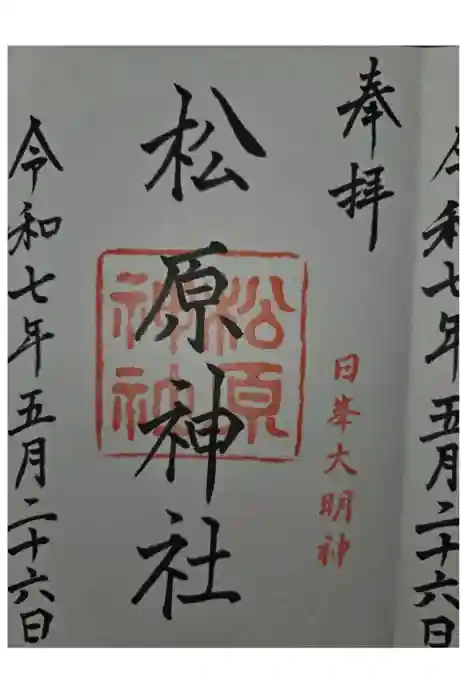 令和七年五月二十六日
奉拝
日峯大明神
松原神社
松原神社
令和七年五月二十六日